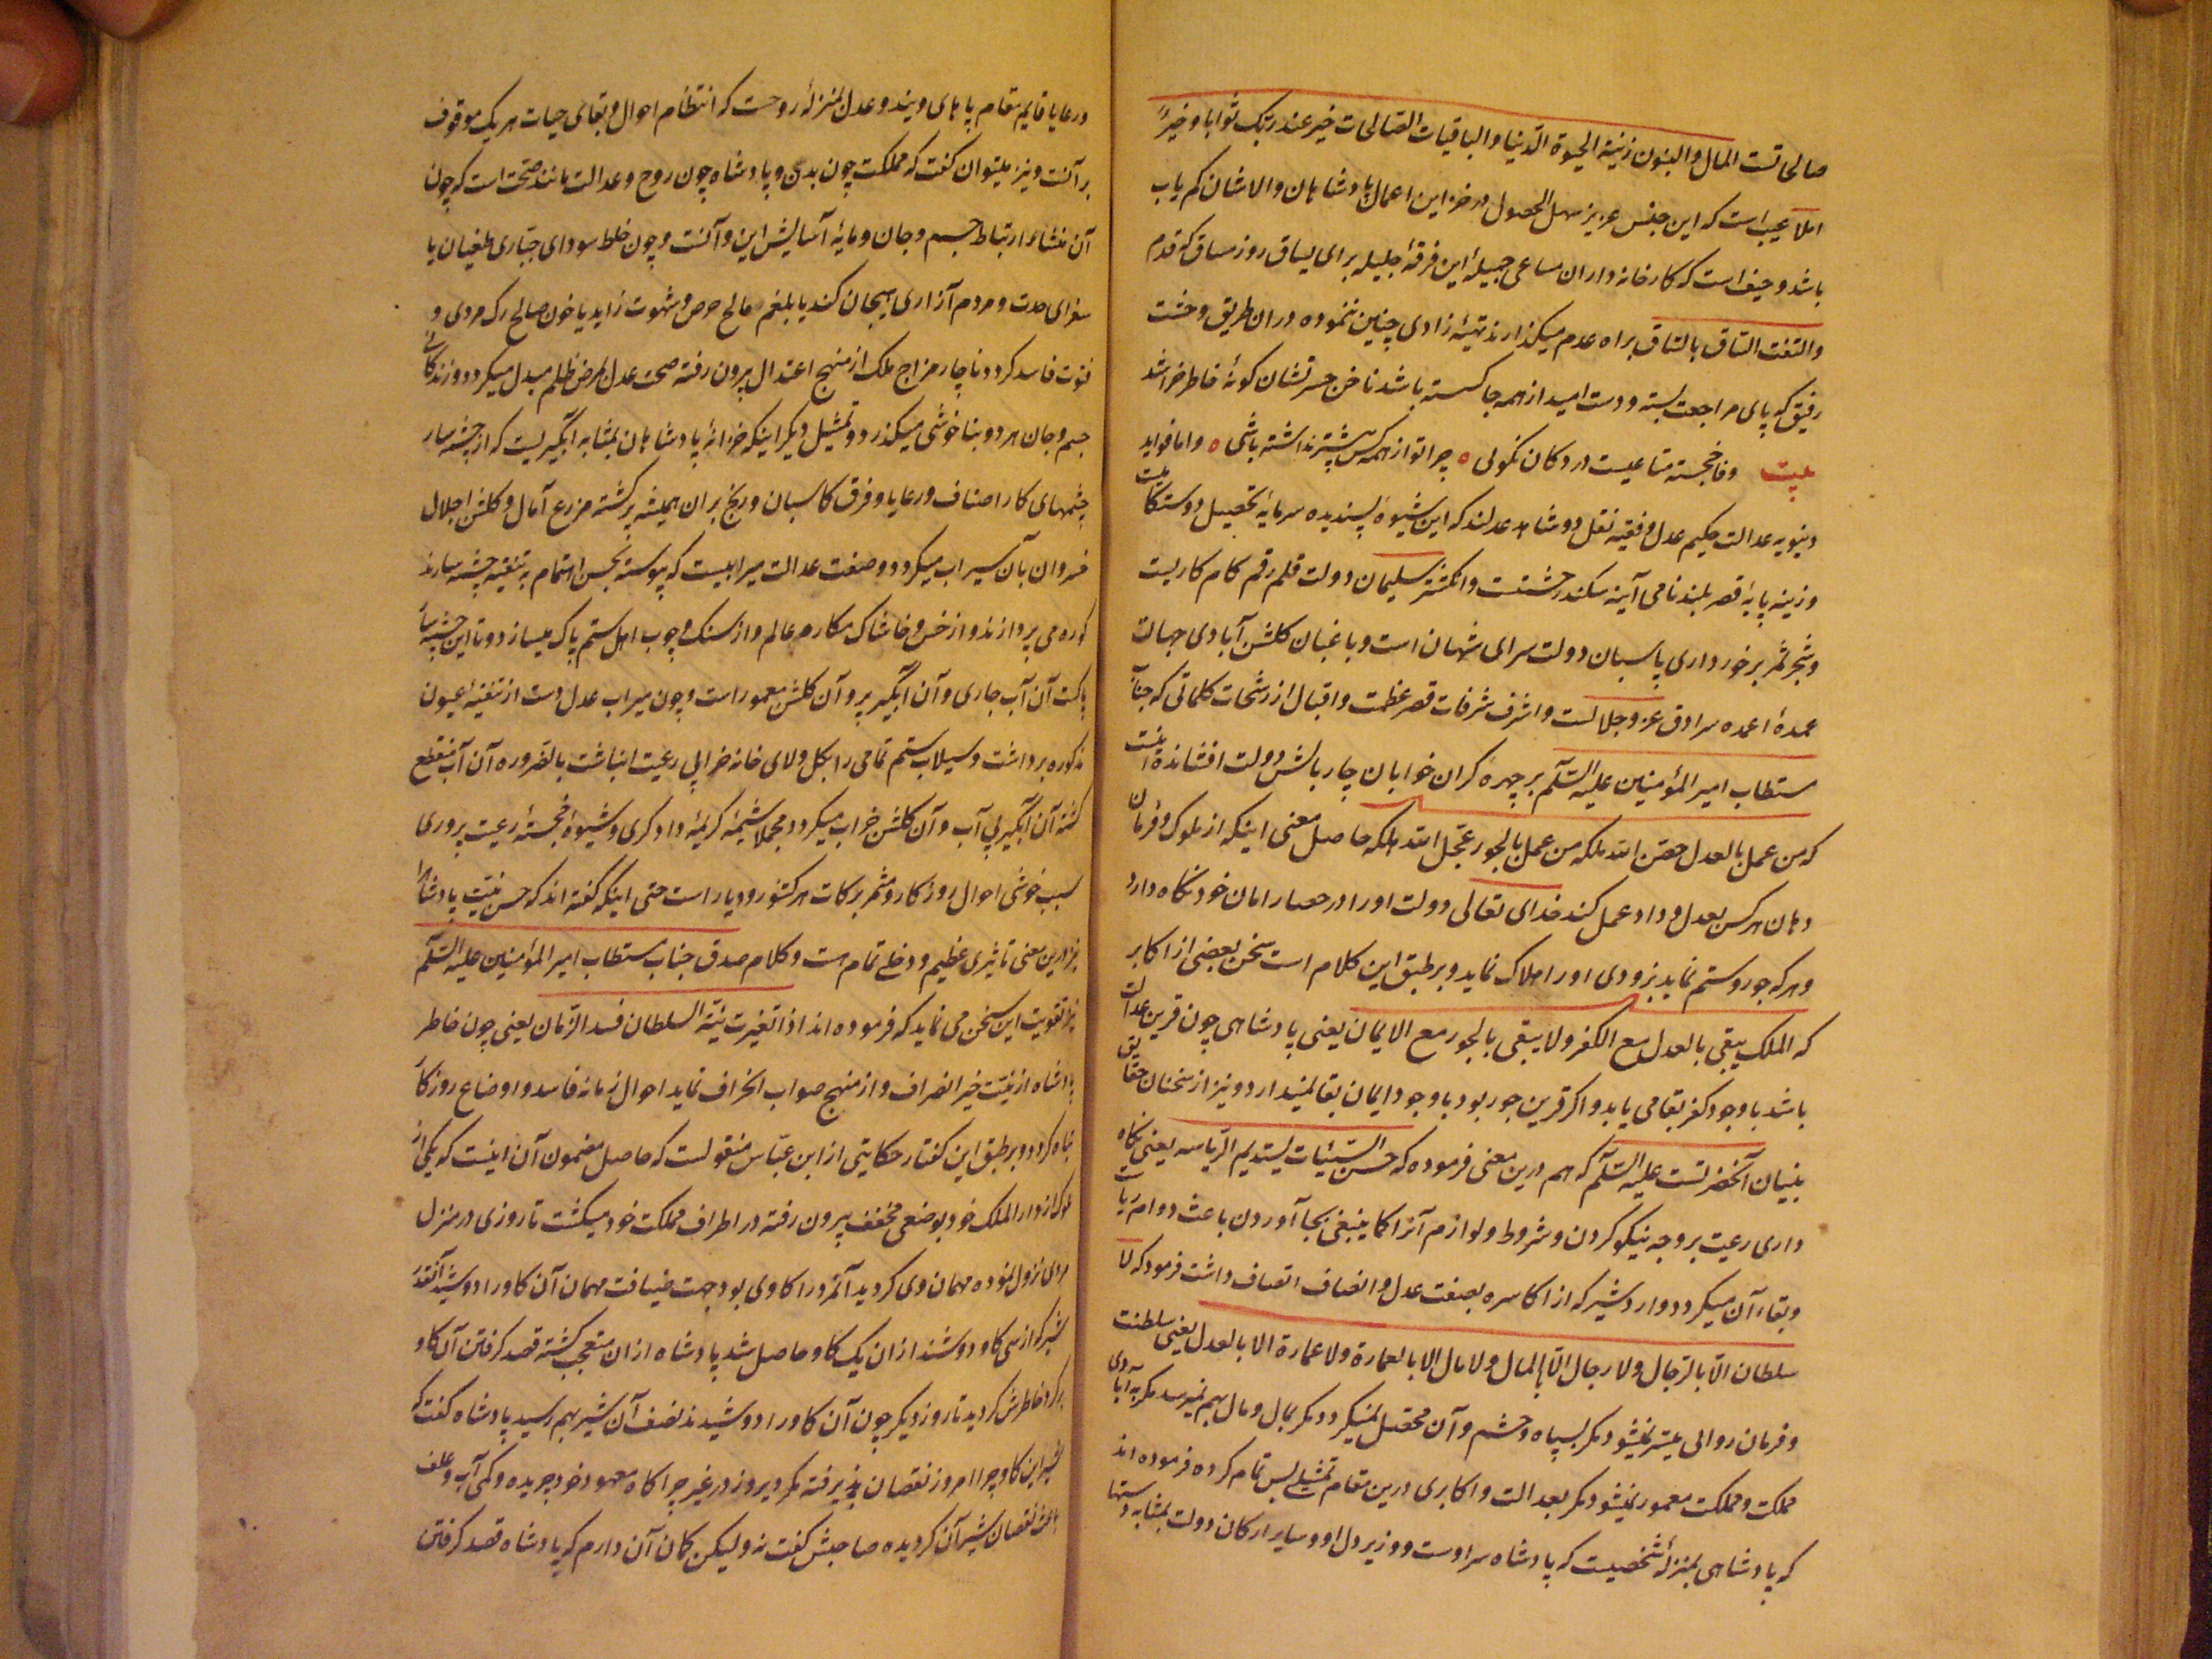 صالحاتست المال والبنون زینة الحیوة الدنیا و الباقیات الصالحات خیر عند ربک ثوابا و خیرٌ
املا عیب است که این جنس عزیز سهل الحصول در خزاین اعمال پادشاهان والاشان کم یاب
باشد و حیف است که کارخانه داران مساعی جمیله این فرقهٔ جلیله برای یساق روز مساق که قدم
والتفت الساق بالساق براه عدم میگذارند تهیهٔ زادی چنین ننموده در ان طریق وحشت
رفیق که پای مراجعت بسته و دست امید از همه جا کسسته باشد ناخن حسرتشان کونهٔ خاطر خراشد
بیت وفا خجسته متاعیست در دکان نکوئی ○ چرا تو از همه کس پیشتر نداشته باشی ○ و اما فواید
دنیویه عدالت حکیم عدل و فقیه نقل دو شاهد عدلند که این شیوهٔ پسندیده سرمایهٔ تحصیل دوستکامیست
و زینه پایهٔ قصر بلند نامی آینه سکندر حشمت و انکشتر سلیمان دولت قلم رقم کام کاریست
و شجر ثمر برخورداری پاسبان دولت سرای شهان است و باغبان کلشن آبادی جهان
عمدهٔ اعمده سرادق عز و جلالست و اشرف شرفات قصر عظمت و اقبال از رشحات کلماتی که جناب
مستطاب امیر المؤمنین علیه السلام بر چهرهٔ کران خوابان چار بالش دولت افشانده اینست
که من عمل بالعدل حصن الله ملکه و من عمل بالجور عجل الله هلکه حاصل معنی اینکه از ملوک و فرمان
دهان هر کس بعدل و داد عمل کند خدای تعالی دولت او را در حصار امان خود نکاه دارد
و هر که جور و ستم نماید بزودی او را هلاک نماید و بر طبق این کلام است سخن بعضی از اکابر
که الملک یبقی بالعدل مع الکفر و لا یبقی بالجور مع الایمان یعنی پادشاهی چون قرین عدالت
باشد با وجود کفر بقا می یابد و اکر قرین جور بود با وجود ایمان بقا نمیدارد و نیز از سخنان حقایق
بنیان آنحضرتست علیه السلام که هم درین معنی فرموده که حسن السیاسات یستدیم الریاسه یعنی نکاه
داری رعیت بر وجه نیکو کردن و شروط و لوازم آنرا کما ینبغی بجا آوردن باعث دوام ریاست
و بقاء آن میکردد و اردشیر که از اکاسره بصفت عدل و انصاف اتصاف داشت فرمود که لا
سلطان الا بالرجال و لا رجال الا بالمال و لا مال الا بالعمارة و لا عمارة الا بالعدل یعنی سلطنت
و فرمان روائی میسر نمیشود مکر بسپاه و حشم و آن محصل نمیکردد مکر بمال و مال بهم نمیرسد مکر به آبادی
مملکت و مملکت معمور نمیشود مکر بعدالت و اکابری درین مقام تمثیلی بس تمام کرده فرموده اند
که پادشاهی بمنزلهٔ شخصیست که پادشاه سر اوست و وزیر دل او و سایر ارکان دولت بمثابه دستها
و رعایا قایم مقام پاهای ویند و عدل بمنزلهٔ روحست که انتظام احوال و بقای حیات هر یک موقوف
بر آنست و نیز میتوان کفت که مملکت چون بدن و پادشاه چون روح و عدالت مانند صحت است که چون
آن منشاء ارتباط جسم و جان و مایهٔ آسایش این و آنست و چون خلط سودای جباری طغیان یا
صفرای حدت و مردم آزاری هیجان کند یا بلغم مالح حرص و شهوت زاید یا خون صالح رک مردی و
فتوت فاسد کردد ناچار مزاج ملک از منهج اعتدال بیرون رفته صحت عدل بمرض ظلم مبدل میکردد و زندکانی
جسم و جان هر دو بناخوشی میکذرد و تمثیل دیکر اینکه خزانهٔ پادشاهان بمثابه آبکیریست که از چشمه سار
چشمهای کار اصناف و رعایا و فرق کاسبان و رنج بران همیشه پر کشته مزرع آمال و کلشن اجلال
فرمان روان بآن سیراب میکردد و صفت عدالت میرابیست که پیوسته بحسن اهتمام به تنقیه چشمه سار مذ
کوره می پردازد و از خس و خاشاک مکاره عالم و از سنک و چوب اهل ستم پاک میسازد و تا این چشمه سار
پاکست آن آب جاری و آن آبکیر پر و آن کلشن معمور است و چون میراب عدل دست از تنقیه عیون
مذکوره برداشت و سیلاب ستم تمامی را بکل و لای خانه خرابی رعیت انباشت بالضروره آن آب منقطع
کشته آن آبکیر بی آب و آن کلشن خراب میکردد مجملا شیمهٔ کریمهٔ دادکری و شیوهٔ خجستهٔ رعیت پروری
سبب خوشی احوال روزکار و مثمر برکات هر کشور و دیار است حتی اینکه کفته اند که حسن نیت پادشاه
نیز درین معنی تاثیری عظیم و دخلی تمام هست و کلام صدق جناب مستطاب امیر المؤمنین علیه السلام
نیز تقویت این سخن می نماید که فرموده اند اذا تغیرت نیة السلطان فسد الزمان یعنی چون خاطر
پادشاه از نیت خیر انصراف و از منهج صواب انحراف نماید احوال زمانه فاسد و اوضاع روزکار
تباه کردد و بر طبق این کفتار حکایتی از ابن عباس منقولست که حاصل مضمون آن اینست که یکی از
ملوک از دار الملک خود بوضعی مخفف بیرون رفته در اطراف مملکت خود میکشت تا روزی در منزل
مردی نزول نموده مهمان وی کردید آنمرد را کاوی بود جهت ضیافت مهمان آن کاو را دوشید آنقدر
شیر که از سی کاو دوشند از ان یک کاو حاصل شد پادشاه از ان متعجب کشته قصد کرفتن آن کاو
کرد خاطرش کردید تا روز دیکر چون آن کاو را دوشیدند نصف آن شیر بهم رسید پادشاه کفت که
شیر این کاو چرا امروز نقصان پذیرفته مکر دیروز در غیر چراکاه معهود خود چریده و کمی آب و علف
باعث نقصان شیر آن کردیده صاحبش کفت نه ولیکن کمان آن دارم که پادشاه قصد کرفتن